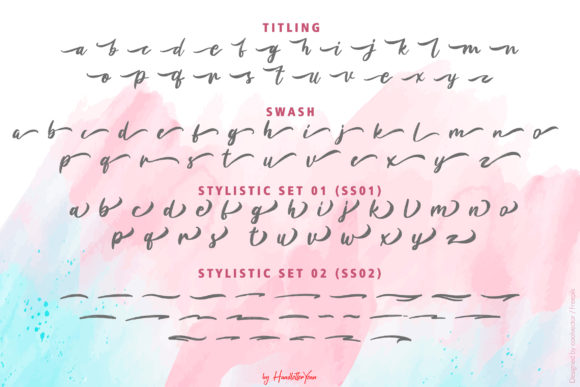 TITLING
a b c d e f g h i j k l m n
o p q r s t u v e x y z
SWASH
a b c d e f g h i j k l m n o
p q r s t u v e x y z
STYLISTIC SET 01 (SS01)
a b c d e f g h i j k l m n o
p q r s t u v w x y z
STYLISTIC SET 02 (SS02)
by HandletterYean
designed by coolvector / freepik